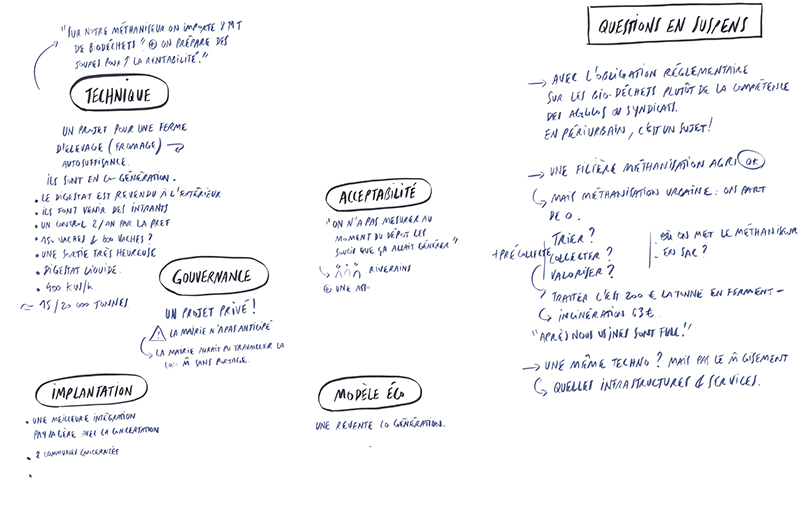 "SUR NOTRE MÉTHANISEUR ON IMPORTE
DE BIODÉCHETS" ⊕ ON PRÉPARE DES
SOUPES POUR ↑ LA RENTABILITÉ."
TECHNIQUE
UN PROJET POUR UNE FERME
D'ELEVAGE (FROMAGE) →
AUTOSUFFISANCE.
ILS SONT EN CO GÉNÉRATION.
• LE DIGESTAT EST REVENDU À L'EXTÉRIEUR
• ILS FONT VENIR DES INTRANTS
• UN CONTROL 2/AN PAR LA PREF
• 150 VACHES & 600 VACHES ?
• UNE SORTIE TRÈS HEUREUSE
• DIGESTAT LIQUIDE.
• 400 KW/h
≈ 15/20 000 TONNES
GOUVERNANCE
UN PROJET PRIVÉ !
⚠ LA MAIRIE N'A PAS ANTICIPÉ
↪ LA MAIRIE AURAIT PU TRAVAILLER LA
SANS PORTAGE.
IMPLANTATION
• UNE MEILLEURE INTÉGRATION
PAYSAGÈRE AVEC LA CONCERTATION
• 2 COMMUNES CONCERNÉES
•
ACCEPTABILITÉ
"ON N'A PAS MESURER AU
MOMENT DU DÉPOT LES
SOUCIS QUE ÇA ALLAIT GÉNÉRER"
↪ RIVERAINS
⊕ UNE ASSO
MODÈLE ÉCO
UNE REVENTE CO GÉNÉRATION.
QUESTIONS EN SUSPENS
→ AVEC L'OBLIGATION RÉGLEMENTAIRE
SUR LES BIO-DÉCHETS PLUTÔT DE LA COMPÉTENCE
DES AGGLOS OU SYNDICATS.
EN PÉRIURBAIN, C'EST UN SUJET !
→ UNE FILIÈRE MÉTHANISATION AGRI OK
↪ MAIS MÉTHANISATION URBAINE : ON PART
DE 0.
TRIER ?
+ PRÉCOLLECTE COLLECTER ?
VALORISER ?
- OÙ ON MET LE MÉTHANISEUR
- EN SAC ?
↪ TRAITER C'EST 200 € LA TONNE EN FERMENT -
↪ INCINÉRATION 63€.
"APRÈS NOUS USINES SONT FULL!"
→ UNE MÊME TECHNO ? MAIS PAS LE M̂ GISEMENT
↪ QUELLES INFRASTRUCTURES & SERVICES.